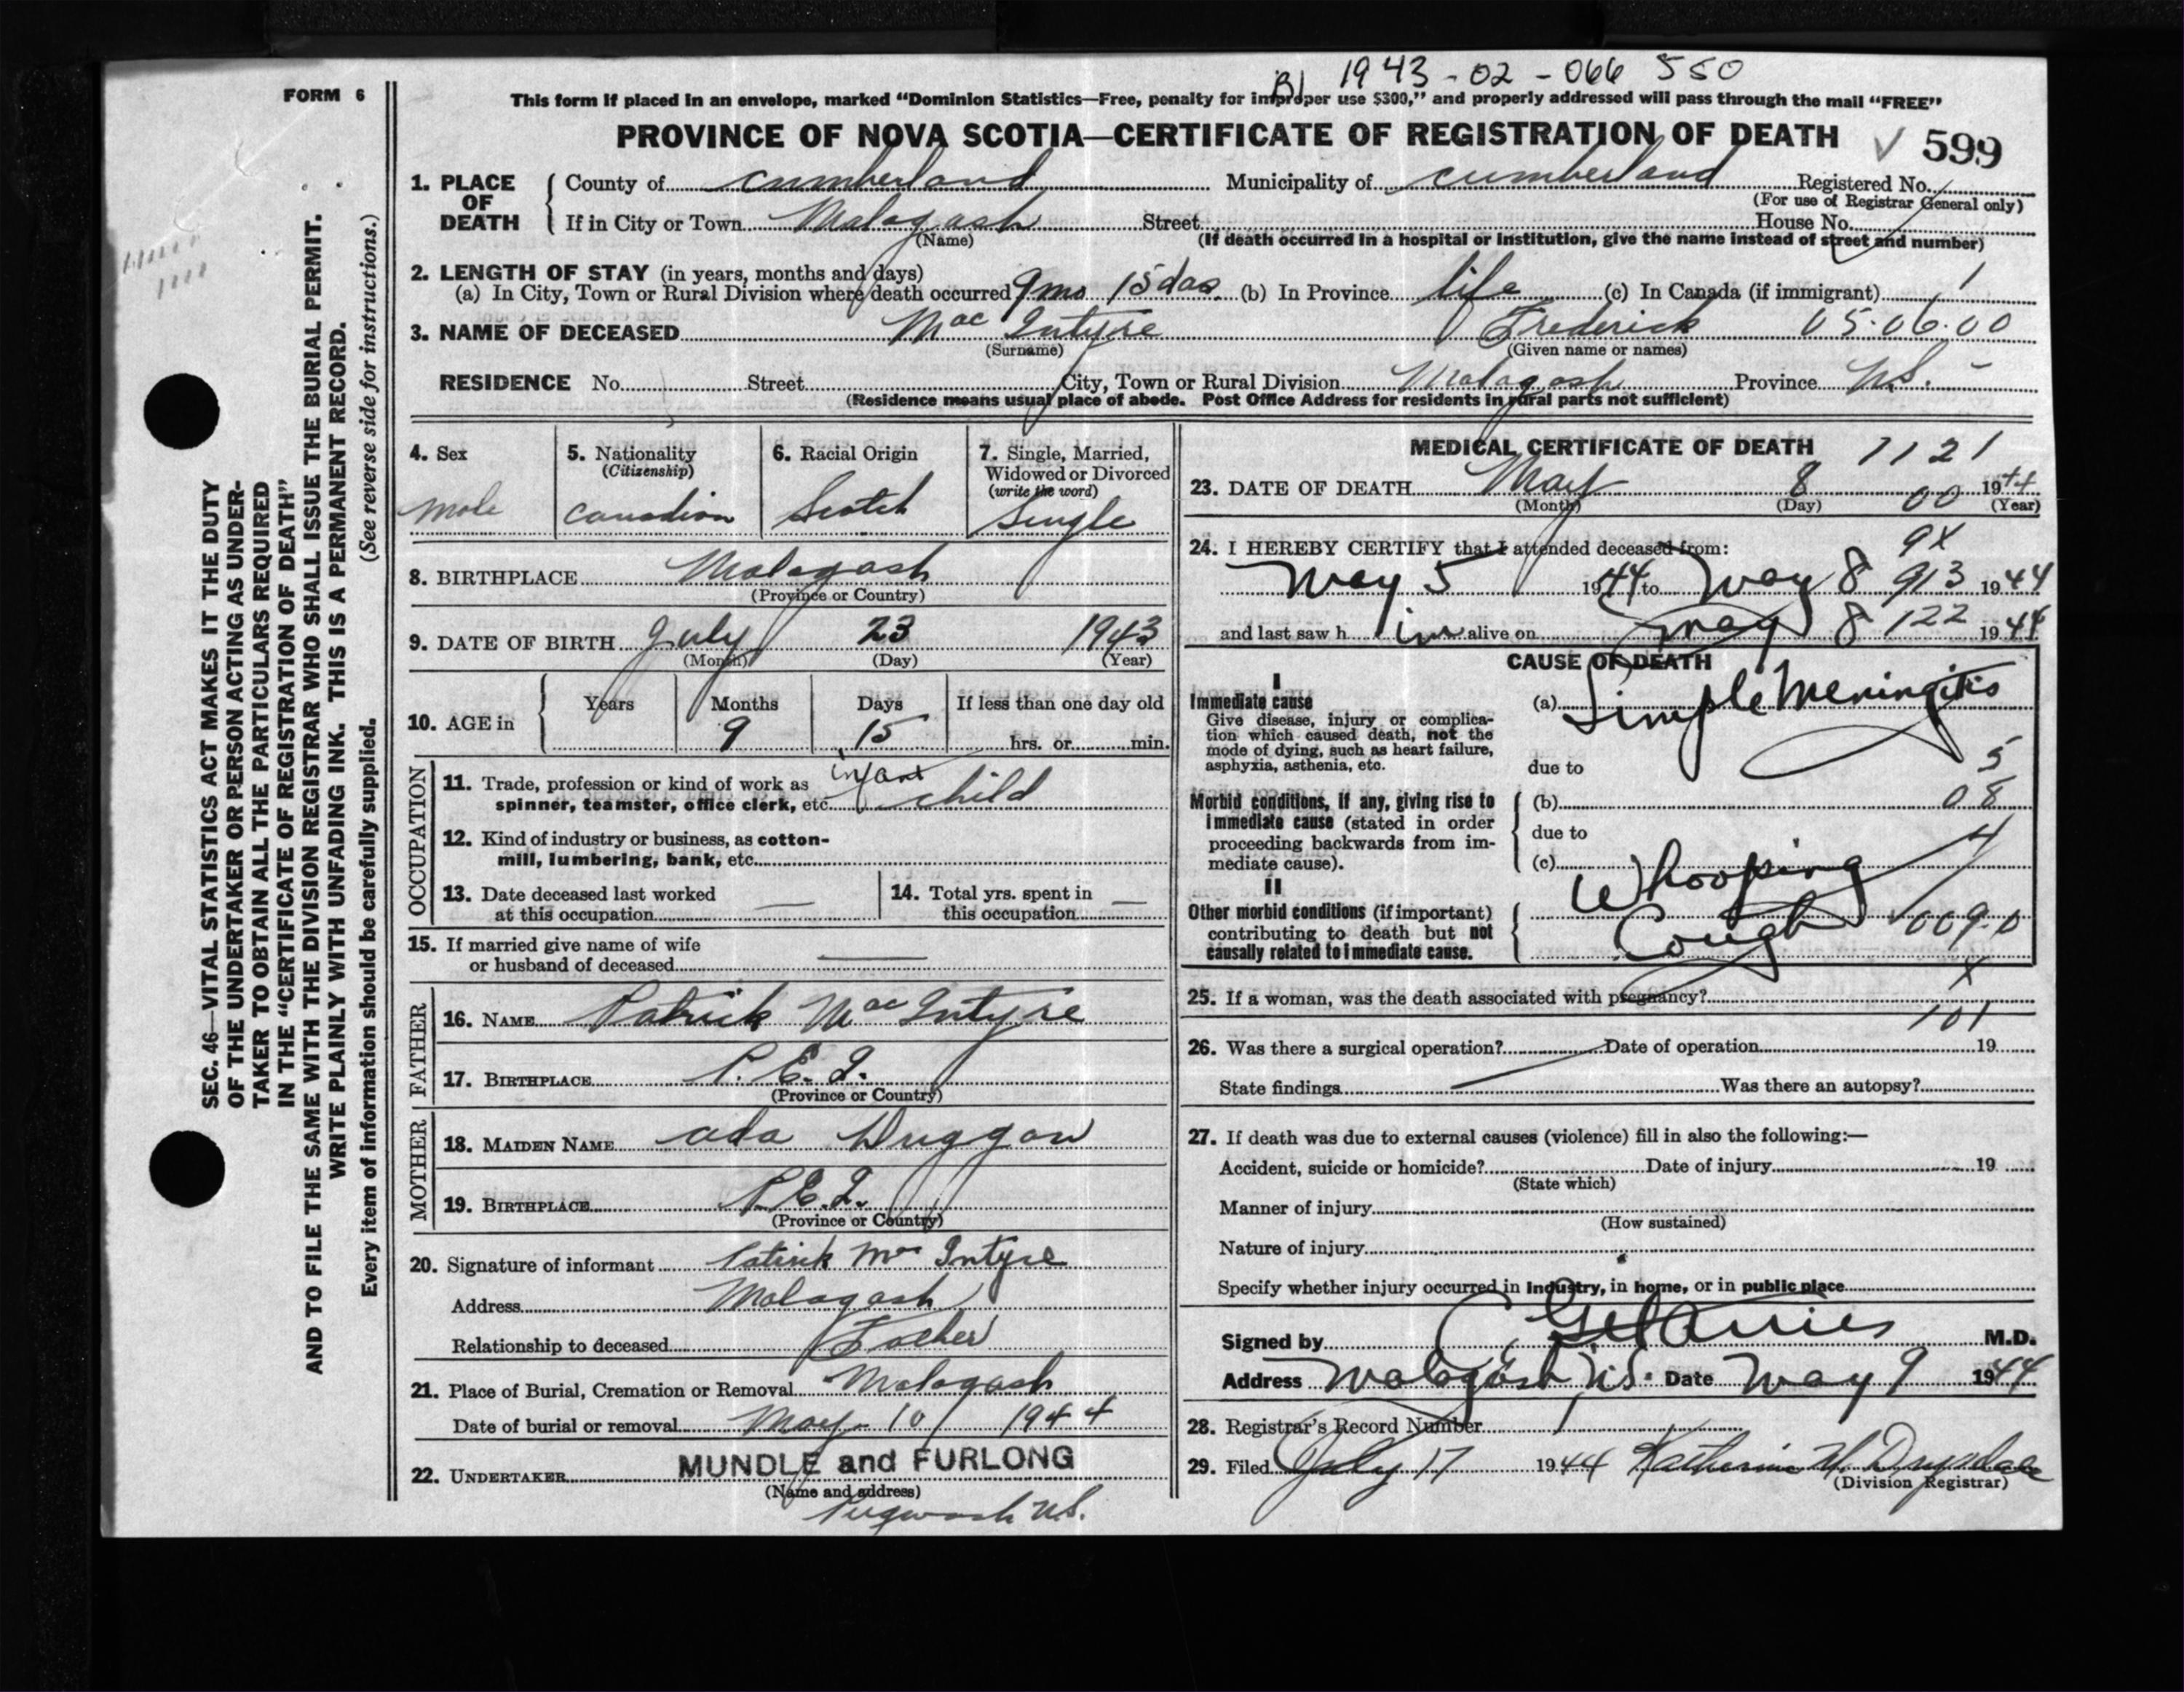 1943-02-066 550
FORM 6
This form if placed in an envelope, marked "Dominion Statistics—Free, penalty for improper use $300," and properly addressed will pass through the mail "FREE"
PROVINCE OF NOVA SCOTIA—CERTIFICATE OF REGISTRATION OF DEATH
599
1. PLACE OF DEATH
County of Cumberland Municipality of Cumberland Registered No.
(For use of Registrar General only)
If in City or Town Malagash Street House No.
(Name) (If death occurred in a hospital or institution, give the name instead of street and number)
2. LENGTH OF STAY (in years, months and days)
(a) In City, Town or Rural Division where death occurred 9 mo 15 das. (b) In Province life (c) In Canada (if immigrant) 1
3. NAME OF DECEASED MacIntyre Frederick 05.06.00
(Surname) (Given name or names)
RESIDENCE No. Street City, Town or Rural Division Malagash Province N.S.
(Residence means usual place of abode. Post Office Address for residents in rural parts not sufficient)
4. Sex
male
5. Nationality
(Citizenship)
Canadian
6. Racial Origin
Scotch
7. Single, Married,
Widowed or Divorced
(write the word)
Single
8. BIRTHPLACE Malagash
(Province or Country)
9. DATE OF BIRTH July 23 1943
(Month) (Day) (Year)
10. AGE in
Years Months Days If less than one day old
9 15 hrs. or min.
OCCUPATION
11. Trade, profession or kind of work as
spinner, teamster, office clerk, etc. infant child
12. Kind of industry or business, as cotton-
mill, lumbering, bank, etc.
13. Date deceased last worked
at this occupation —
14. Total yrs. spent in
this occupation —
15. If married give name of wife
or husband of deceased —
FATHER
16. NAME Patrick MacIntyre
17. BIRTHPLACE P.E.I.
(Province or Country)
MOTHER
18. MAIDEN NAME Ada Duggan
19. BIRTHPLACE P.E.I.
(Province or Country)
20. Signature of informant Patrick MacIntyre
Address Malagash
Relationship to deceased Father
21. Place of Burial, Cremation or Removal Malagash
Date of burial or removal May 10 1944
22. UNDERTAKER MUNDLE and FURLONG
(Name and address)
Pugwash N.S.
MEDICAL CERTIFICATE OF DEATH
1121
23. DATE OF DEATH May 8 1944
(Month) (Day) 00 (Year)
24. I HEREBY CERTIFY that I attended deceased from:
9X
May 5 1944 to May 8 913 1944
and last saw him alive on May 8 122 1944
CAUSE OF DEATH
I
Immediate cause
Give disease, injury or complica-
tion which caused death, not the
mode of dying, such as heart failure,
asphyxia, asthenia, etc.
(a) Simple Meningitis
due to 5
Morbid conditions, if any, giving rise to
immediate cause (stated in order
proceeding backwards from im-
mediate cause).
(b) 08
due to 4
(c)
II
Other morbid conditions (if important)
contributing to death but not
causally related to immediate cause.
Whooping
Cough 009.0
25. If a woman, was the death associated with pregnancy? X
101
26. Was there a surgical operation? Date of operation 19
State findings Was there an autopsy?
27. If death was due to external causes (violence) fill in also the following:—
Accident, suicide or homicide? Date of injury 19
(State which)
Manner of injury
(How sustained)
Nature of injury
Specify whether injury occurred in industry, in home, or in public place
Signed by M.D.
Address Malagash N.S. Date May 9 1944
28. Registrar's Record Number 1
29. Filed July 17 1944 Katherine Drysdale
(Division Registrar)
SEC. 46—VITAL STATISTICS ACT MAKES IT THE DUTY
OF THE UNDERTAKER OR PERSON ACTING AS UNDER-
TAKER TO OBTAIN ALL THE PARTICULARS REQUIRED
IN THE "CERTIFICATE OF REGISTRATION OF DEATH"
AND TO FILE THE SAME WITH THE DIVISION REGISTRAR WHO SHALL ISSUE THE BURIAL PERMIT.
WRITE PLAINLY WITH UNFADING INK. THIS IS A PERMANENT RECORD.
Every item of information should be carefully supplied. (See reverse side for instructions.)